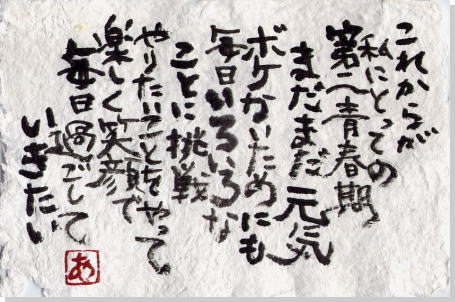 これからが
私にとっての
第二青春期
まだまだ元気
ボケないためにも
毎日いろいろな
ことに挑戦
やりたいことをやって
楽しく笑顔で
毎日過ごして
いきたい
あ